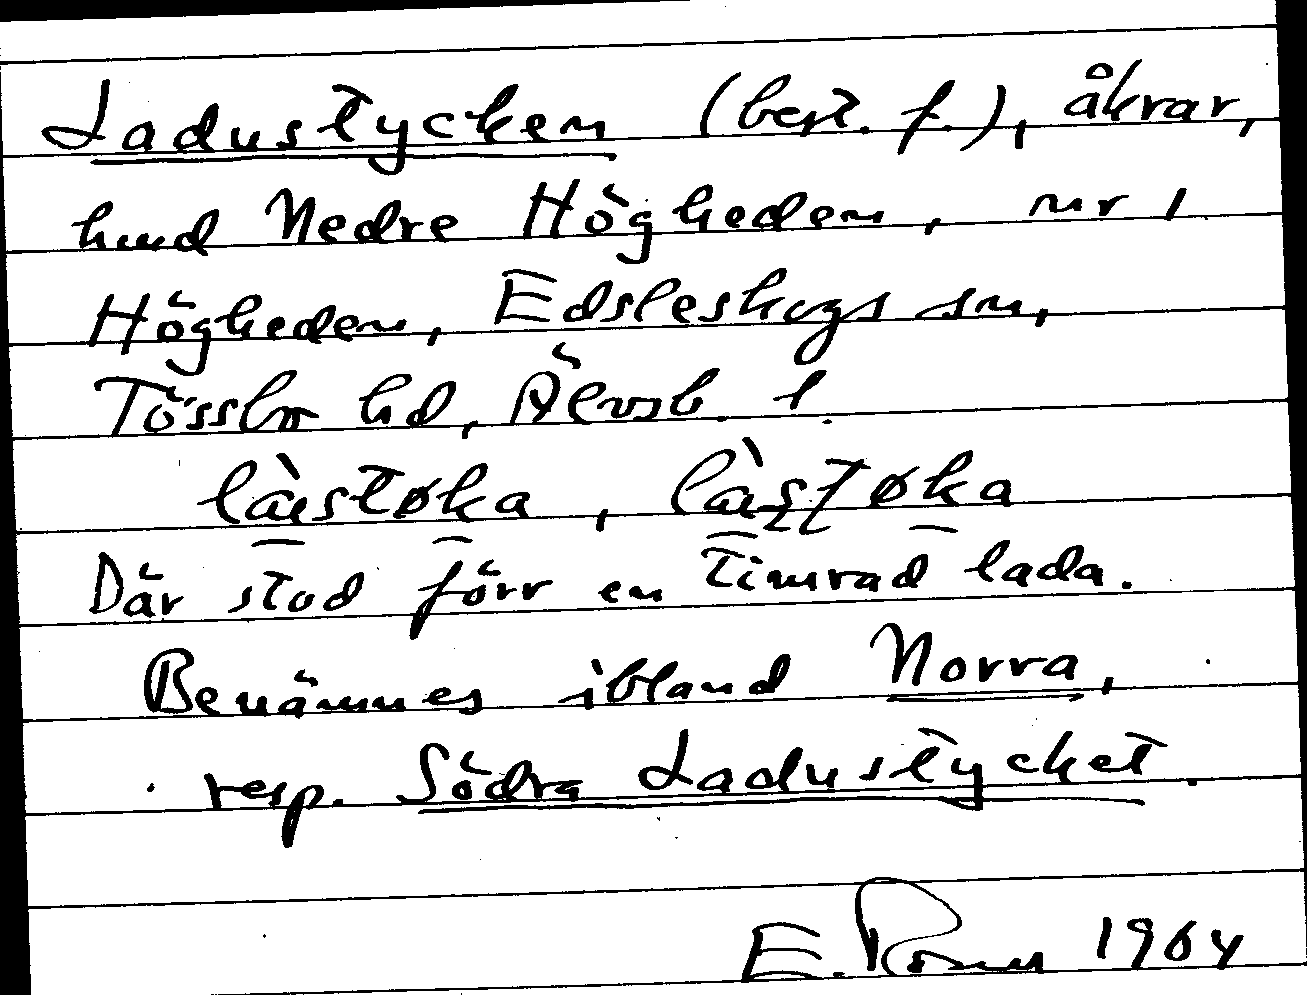 Ladustycken (best. f.), åkrar,
hmd Nedre Högheden, nr 1
Högheden, Edsleskogs sn,
Tössbo hd, Älvsb. l.
Där stod förr en timrad lada.
Benämnes ibland Norra,
resp. Södra Ladustycket.
E. 1964